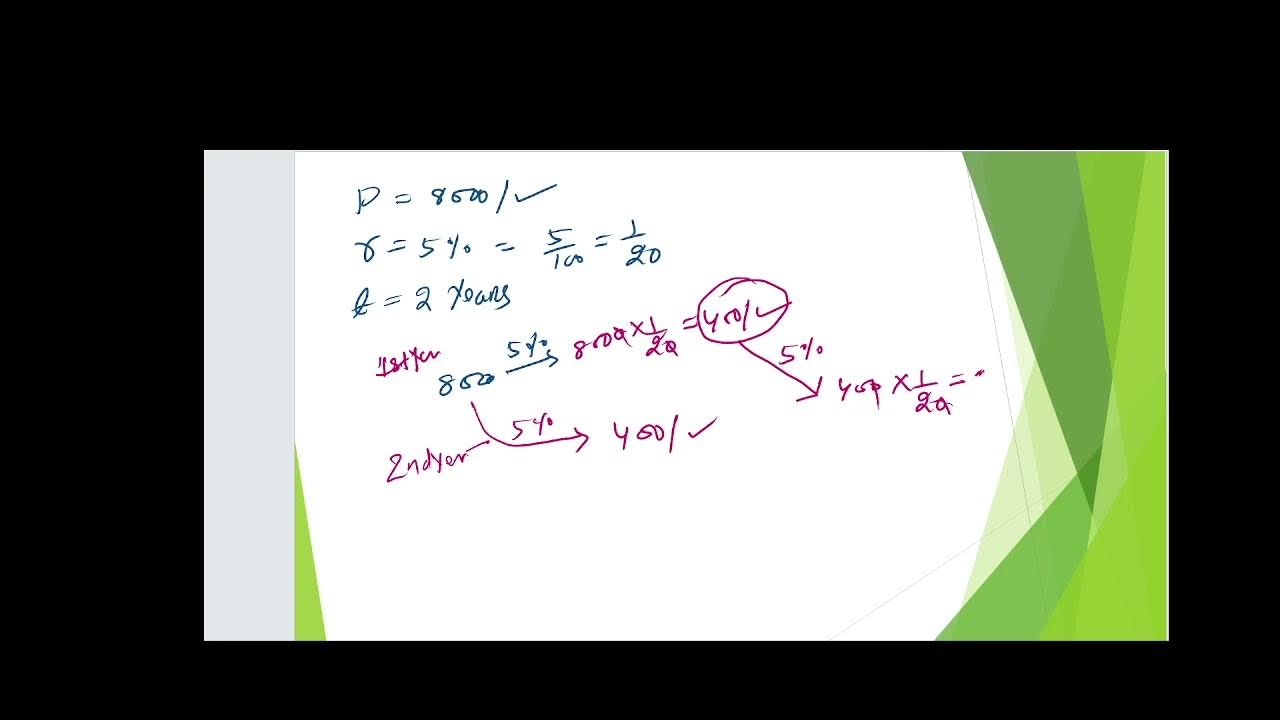 P = 8000/✓
r = 5% = 5/100 = 1/20
t = 2 Years
1st Yer 8000 5% → 8000 × 1/20 = 400/✓
5% → 400 × 1/20 =
2nd Yer 5% → 400/✓